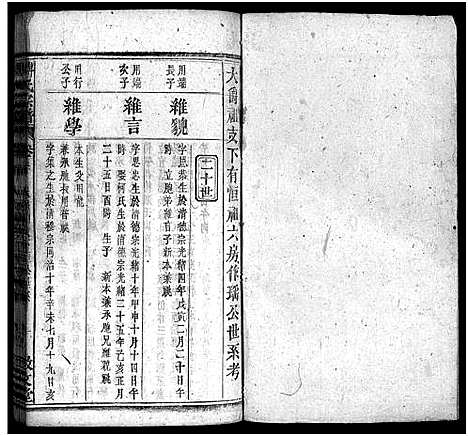 大 祖支下有恒祖六房 瑀公世系考
二十世
用端
長子
維貌
字思恭生於清德宗光緒四年戊寅二月二十日午
時 立胞弟維言子新本兼祧
用端
次子
維言
字思忠生於清德宗光緒十年甲申十月十四日午
時 娶柯氏生於清德宗光緒二十五年己亥正月
二十五日酉時 生子 新本兼承胞兄維貌祧
用行
公子
維學
本生父用
兼承胞 用 祧
字 之生於清穆宗同治十年辛未七月十九日亥
敬 堂